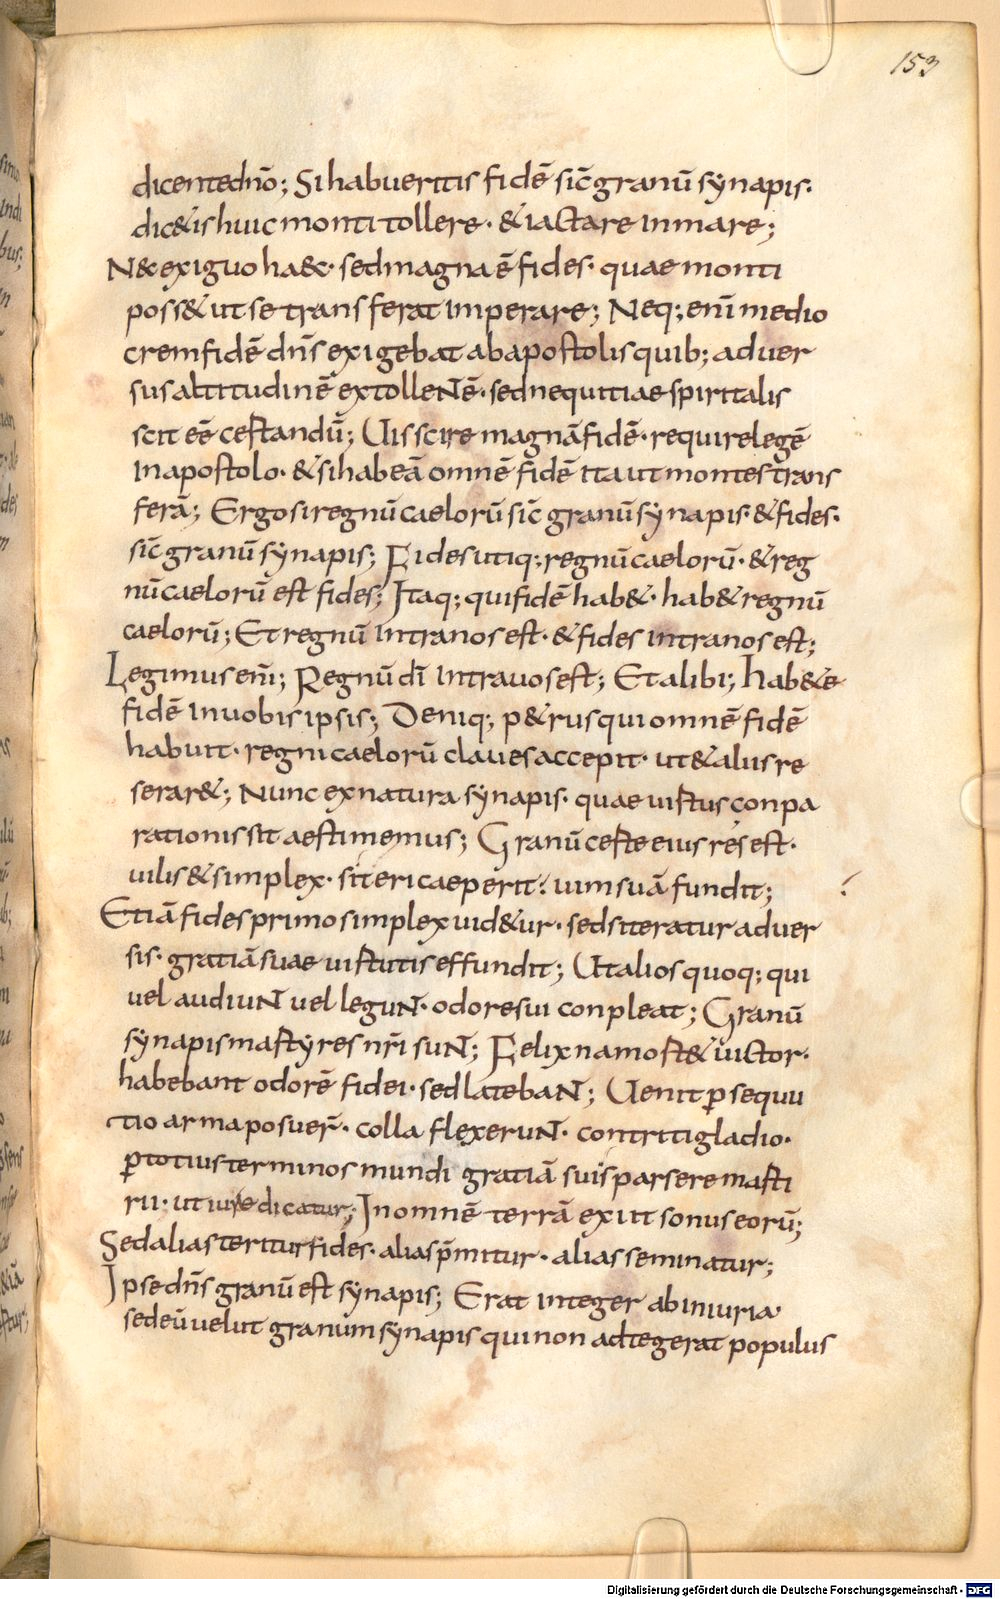 153
dicentednō; Si habueritis fidē sic̄ granū synapis·
dic&is huic monti tollere· & iactare in mare;
N& exiguo haec· sed magna ē fides· quae monti
poss& ut se transferat imperare; Neq; enī medio
crem fidē dn̄s exigebat ab apostolis quib; aduer
sus altitudinē extollentē· sed nequitiae spiritalis
scit eē certandū; Uis scire magnā fidē· require legē
in apostolo· & si habeā omnē fidē ita ut montes trans
ferā; Ergo si regnū caelorū sic̄ granū synapis· & fides·
sic̄ granū synapis; Fides utiq; regnū caelorū· & reg
nū caelorū est fides; Itaq; qui fidē hab&· hab& regnū
caelorū; Et regnū intra nos est· & fides intra nos est;
Legimus enī; Regnū dī intra uos est; Et alibi; hab&e
fidē in uobis ipsis; Deniq; p&rus qui omnē fidē
habuit· regni caelorū claues accepit· ut & aliis re
serar&; Nunc ex natura synapis· quae uirtus conpa
rationis sit aestimemus; Granū certe eius res est·
uilis & simplex· si teri caeperit? uim suā fundit;
Etiā fides primo simplex uid&ur· sed si teratur aduer
sis· gratiā suae uirtutis effundit; Ut alios quoq; qui
uel audiunt uel legunt· odore sui conpleat; Granū
synapis martyres nr̄i sunt; Felix namost& uictor·
habebant odorē fidei· sed latebant; Uenit p̄sequu
tio arma posuer̄· colla flexerunt· contriti gladio·
p̄ totius terminos mundi gratiā sui sparsere marti
rii· ut iure dicatur; In omnē terrā exiit sonus eorū;
Sed alias teritur fides· alias p̄mitur· alias seminatur;
Ipse dn̄s granū est synapis; Erat integer ab iniuria·
sed eū uelut granum synapis qui non adtegerat populus
Digitalisierung gefördert durch die Deutsche Forschungsgemeinschaft - DFG